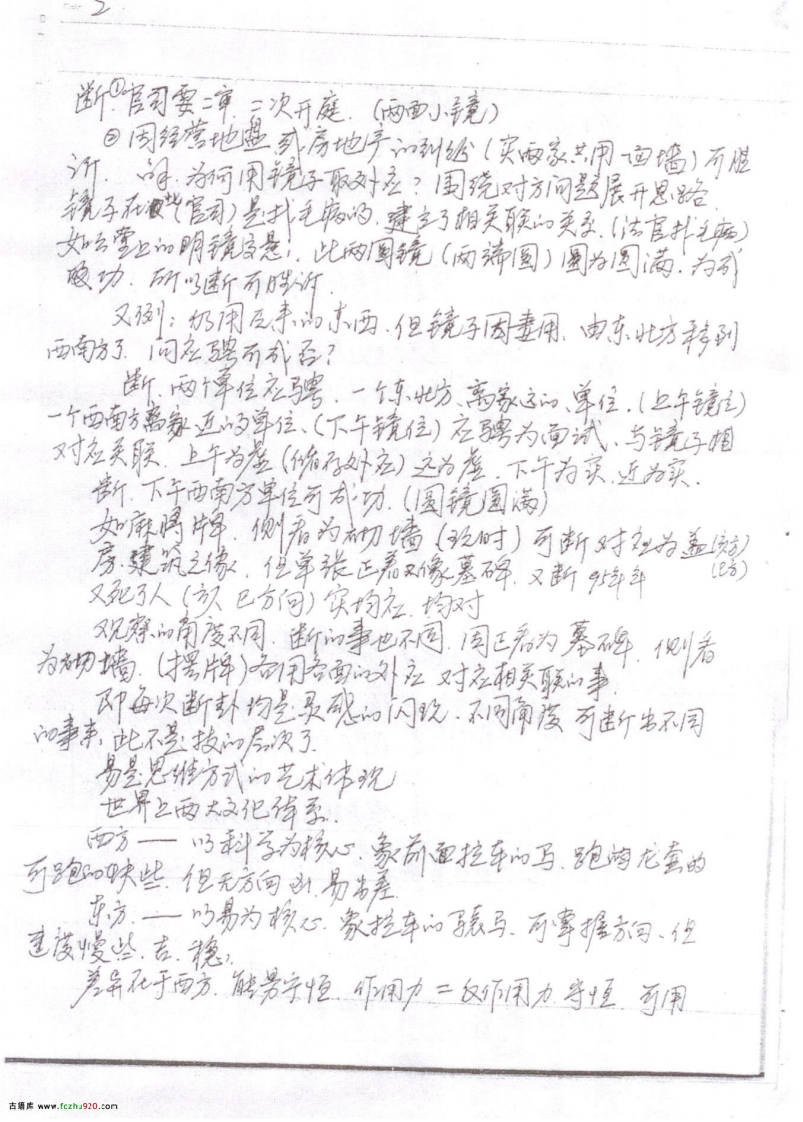 2
断①官司要二审.二次开庭.(两面小镜)
②因经营地盘或房地产的纠纷(实两家共用一面墙)可胜
诉. 为何用镜子取外应?围绕对方问题展开思路.
镜子在(官司)是找毛病的.建立了相关联的关系.(法官找毛病)
如公堂上的明镜高悬,此两圆镜(两蹄圆)圆为圆满.为成
成功.所以断可胜诉.
又例:仍用原来的东西.但镜子因妻用.由东北方移到
西南方了.问应聘可成否?
断.两个单位应聘.一个东北方.离家远的.单位.(上午镜位)
一个西南方离家近的单位.(下午镜位)应聘为面试.与镜子相
对应关联.上午为虚(储存外应)远为虚.下午为实.近为实.
断.下午西南方单位可成功.(圆镜圆满)
如麻将牌.侧看为砌墙(现时)可断对应为盖
房.建筑之像.但单张正看又像墓碑.又断95年
(巳方)
又死了人(亥巳方向)实均应.均对
观察的角度不同.断的事也不同.因正看为墓碑.侧看
为砌墙.(摆牌)各用各面的外应.对应相关联的事.
即每次断卦均是灵感的闪现.不同角度可断出不同
的事来.此不是技的层次了.
易是思维方式的艺术体现
世界上两大文化体系.
西方——以科学为核心.象前面拉车的马.跑的龙套的
可跑的快些.但无方向 易出差.
东方.——以易为核心.象拉车的辕马.可掌握方向.但
速度慢些.古.稳.
差异在于西方.能量守恒.作用力=反作用力.守恒.可用
古籍库 www.fozhu920.com